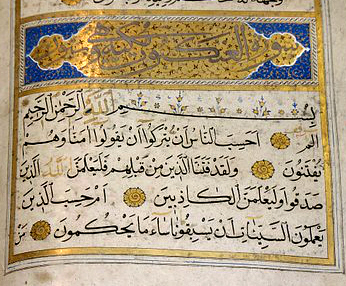 سورة العنكبوت
بسم الله الرحمن الرحيم
الم احسب الناس ان يتركوا ان يقولوا امنا وهم
يفتنون ولقد فتنا الذين من قبلهم فليعلمن الله الذين
صدقوا وليعلمن الكاذبين ام حسب الذين
يعملون السيئات ان يسبقونا ساء ما يحكمون من